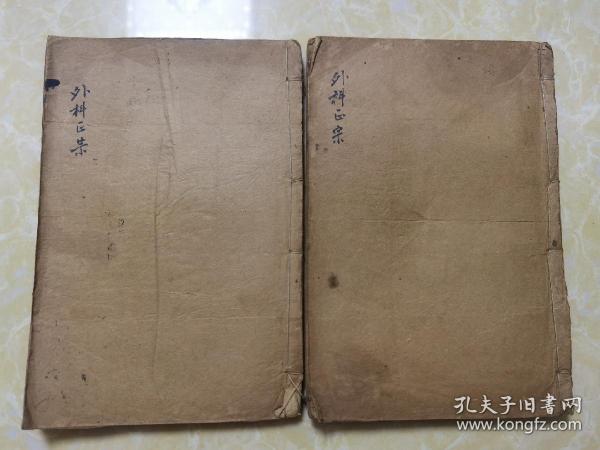 外科正宗
外科正宗
孔夫子旧書网
www.kongfz.com